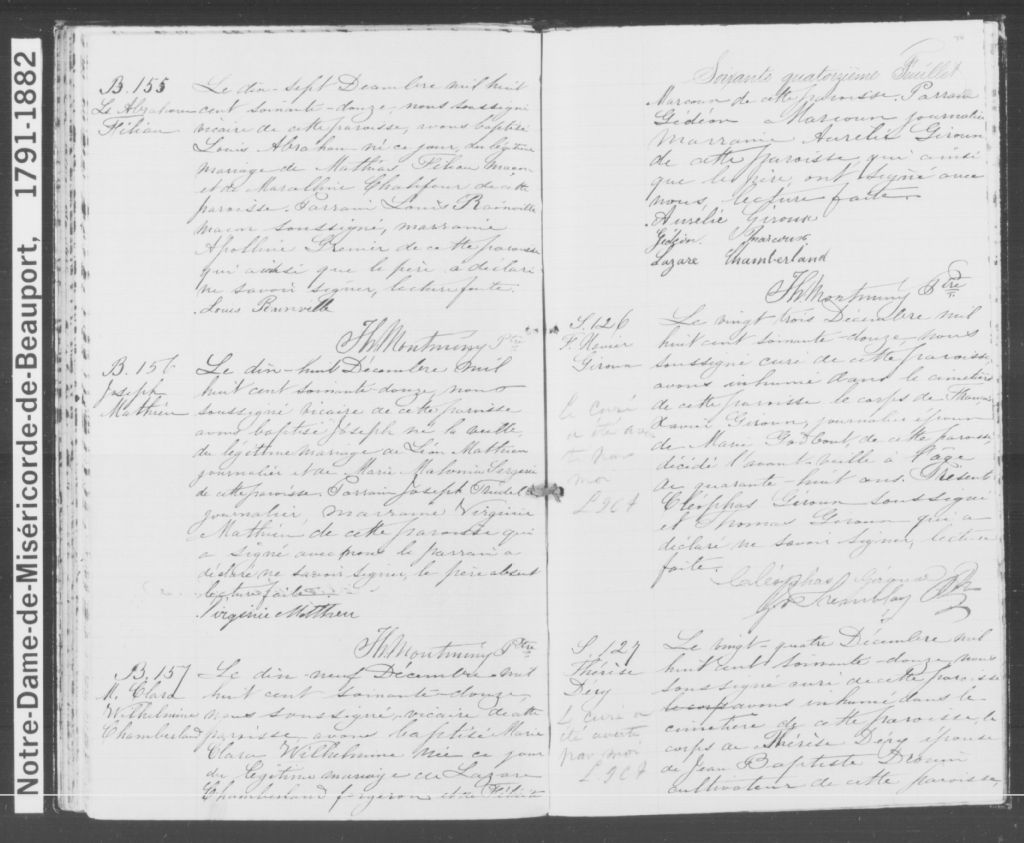 Notre-Dame-de-Miséricorde-de-Beauport, 1791-1882
B. 155
Ls Abraham
Filian
Le dix-sept Décembre mil huit
cent soixante-douze, nous soussigné
vicaire de cette paroisse, avons baptisé
Louis Abraham né ce jour, du légitime
mariage de Mathias Filian maçon
et de Marcelline Chalifour de cette
paroisse. Parrain Louis Rainville
maçon soussigné, marraine
Apolline Remir de cette paroisse
qui ainsi que le père a déclaré
ne savoir signer, lecture faite.
Louis Rainville
Th. Montminy Ptre
B. 156
Joseph
Mathieu
Le dix-huit Décembre mil
huit cent soixante-douze, nous
soussigné vicaire de cette paroisse
avons baptisé Joseph né la veille
du légitime mariage de Léon Mathieu
journalier et de Marie
de cette paroisse. Parrain Joseph Trudel
journalier, marraine Virginie
Mathieu de cette paroisse qui
a signé avec nous le parrain a
déclaré ne savoir signer, le père absent
lecture faite
Virginie Matthieu
Th. Montminy Ptre
B. 157
M. Clara
Wilhelmine
Chamberland
Le dix-neuf Décembre mil
huit cent soixante-douze,
nous soussigné, vicaire de cette
paroisse, avons baptisé Marie
Clara Wilhelmine née ce jour
du légitime mariage de Lazare
Chamberland forgeron et de
Soixante quatorzième Feuillet
Marcoux de cette paroisse. Parrain
Gédéon Marcoux journalier
marraine Aurélie Giroux
de cette paroisse qui ainsi
que le père, ont signé avec
nous, lecture faite.
Aurélie Giroux
Gédéon Marcoux
Lazare Chamberland
Th. Montminy Ptre
S. 126
F. Xavier
Giroux
Le vingt-trois Décembre mil
huit cent soixante-douze, nous
soussigné curé de cette paroisse,
avons inhumé dans le cimetière
de cette paroisse le corps de François
Xavier Giroux, journalier époux
de Marie Godbout, de cette paroisse
décédé l'avant-veille à l'age
de quarante-huit ans. Présents
Cléophas Giroux soussigné
et Thomas Giroux qui a
déclaré ne savoir signer, lecture
faite.
Cléophas Giroux
Tremblay Ptre
le curé
a été
par
moi
S. 127
Thérèse
Déry
Le vingt-quatre Décembre mil
huit cent soixante-douze, nous
soussigné curé de cette paroisse
le corps avons inhumé dans le
cimetière de cette paroisse, le
corps de Thérèse Déry épouse
de Jean Baptiste Drouin
cultivateur de cette paroisse,
le curé a
été averti
par moi